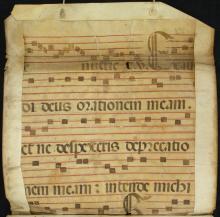 di deus orationem meam.
et ne despexeris deprecatio
nem meam: intende michi